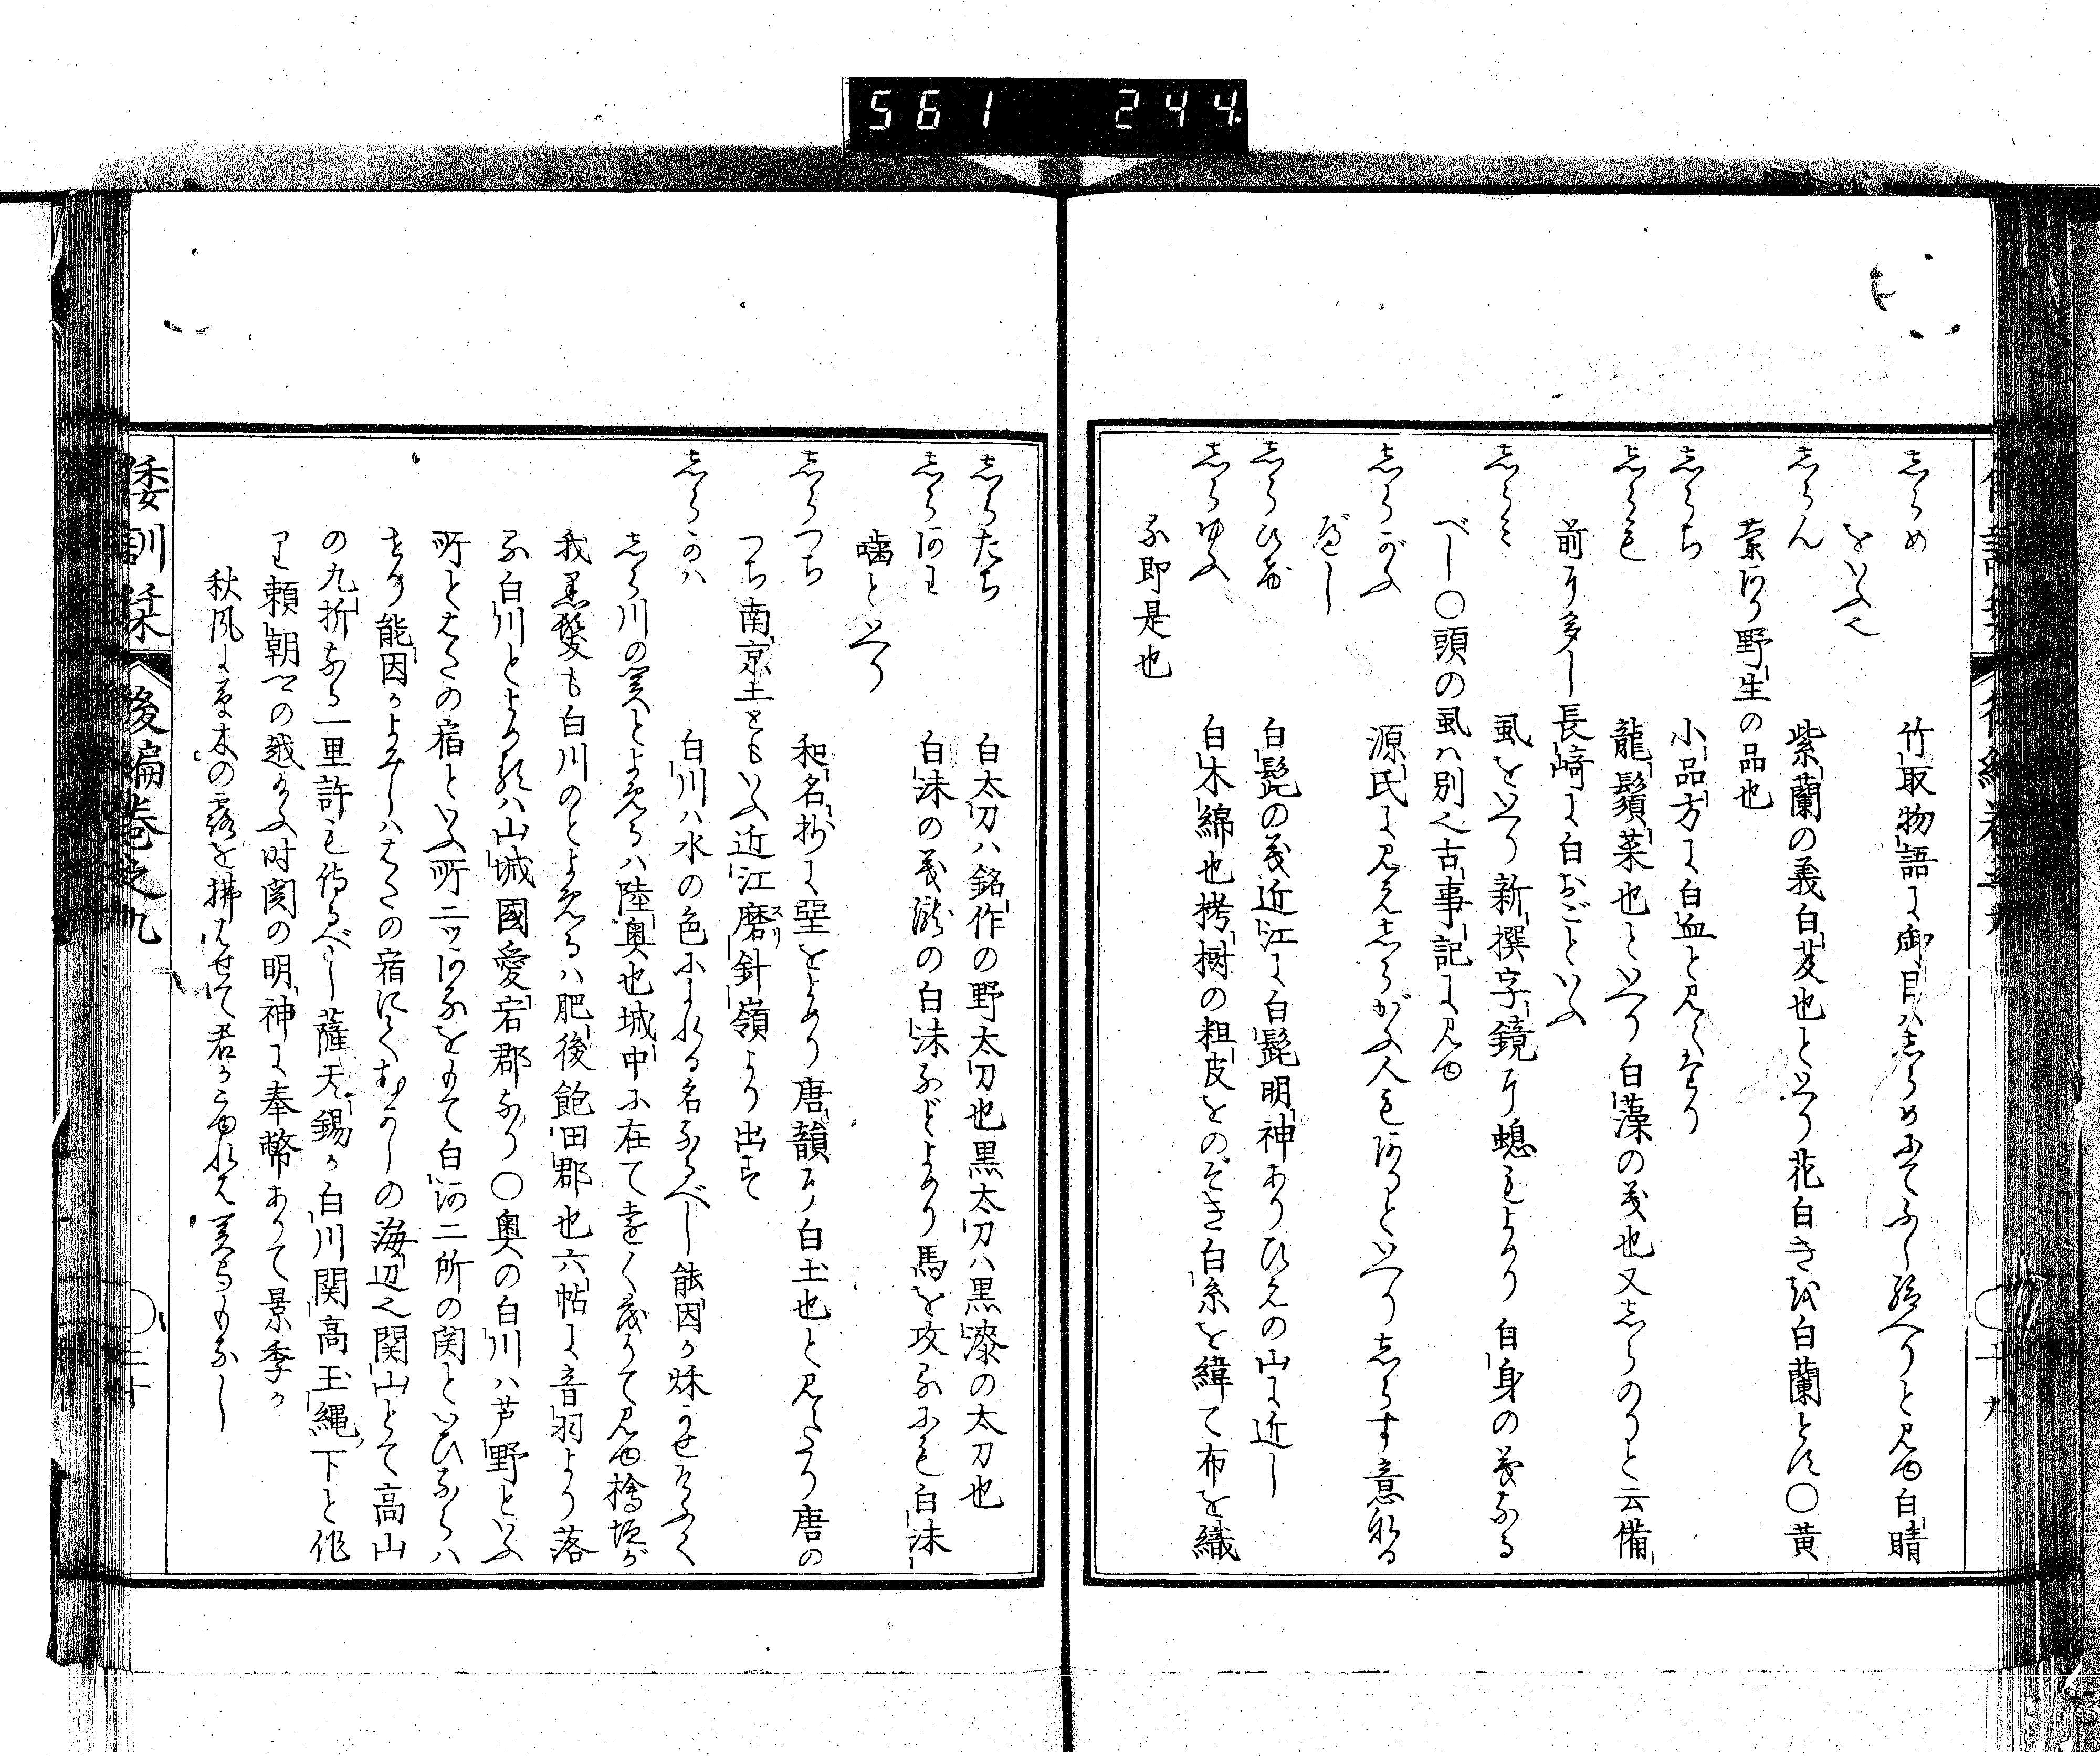 561 244.
しらめ 竹取物語に御目ハしらめにてふし給へりと見ゆ白睛
をいふ也
しらん 紫蘭の義白芨也といへり花白きを白蘭とす○黄
蘭あり野生の品也
しらち 小品方に白血と見えたり
しらも 龍鬚菜也といへり白藻の義也又しらのりと云備
前に多し長崎に白おごといふ
しらミ 虱をいへり新撰字鏡に螅もよめり自身の義なる
べし○頭の虱ハ別也古事記に見ゆ
しらがふ 源氏に見えしらがふ人もありといへりしらす意なる
べし
しらひげ 白髭の義近江に白髭明神ありひえの山に近し
しらゆふ 白木綿也栲樹の粗皮をのぞき白糸を緯て布を織
る即是也
しらたち 白太刀ハ銘作の野太刀也黒太刀ハ黒漆の太刀也
しらあわ 白沫の義瀧の白沫などよめり馬を攻るにも白沫
噛といへり
しらつち 和名抄に堊をよめり唐韻に白土也と見えたり唐の
つち南京土ともいふ近江磨針嶺より出す
しらかハ 白川ハ水の色によれる名なるべし能因か秌かせそふく
しら川の関とよめるハ陸奥也城中に在て遠く茂りて見ゆ檜垣が
我黒髪も白川のとよめるハ肥後飽田郡也六帖に音羽より落
る白川とよめるハ山城國愛宕郡なり○奥の白川ハ芦野といふ
所とはたの宿といふ所二ッあるをもて白河二所の関といひならハ
せり能因かよみしハはたの宿にてむかしの海辺也関山とて高山
の九折なる一里許も侍るべし薩天錫か白川関高玉縄下と作
り頼朝公の越たまふ时関の明神に奉幣ありて景季か
秋風に草木の露を拂はせて君かこゆれは関守もなし
倭訓栞 後編卷之九 ○二十